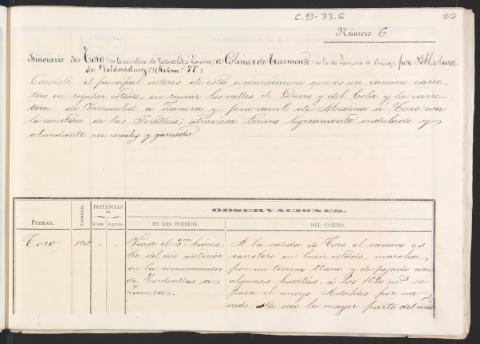 C.53-33.6
23
Número 6
Itinerario de Toro (en la carretera de Valladolid a Zamora) a Colinas de Trasmonte (en la de Zamora a ) por Pobladura
de Valderaduey (Kilóm.s 77.)
Consiste el principal interes de esta comunicacion que es un camino carre-
tero en regular estado, en reunir los valles de Duero y del Esla y la carre-
tera de Valladolid a Zamora y ferro carril de Medina a Toro con
la carretera de las Portillas; atraviesa terreno ligeramente ondulado y
abundante en cereales y ganado
PUEBLOS.
VECINDARIO.
DISTANCIAS
EN
Kilóm.
Leguas.
OBSERVACIONES.
DE LOS PUEBLOS.
DEL CAMINO.
Toro
Véase el itinera-
rio del año anterior
en la comunicacion
de Tordesillas a
Zamora.
A la salida de Toro el camino es
carretero en buen estado, marcha
por un terreno llano y despejado con
algunas huertas. a los 1620 m.s se
pasa el arroyo Adalias por un
vado seco la mayor parte del año